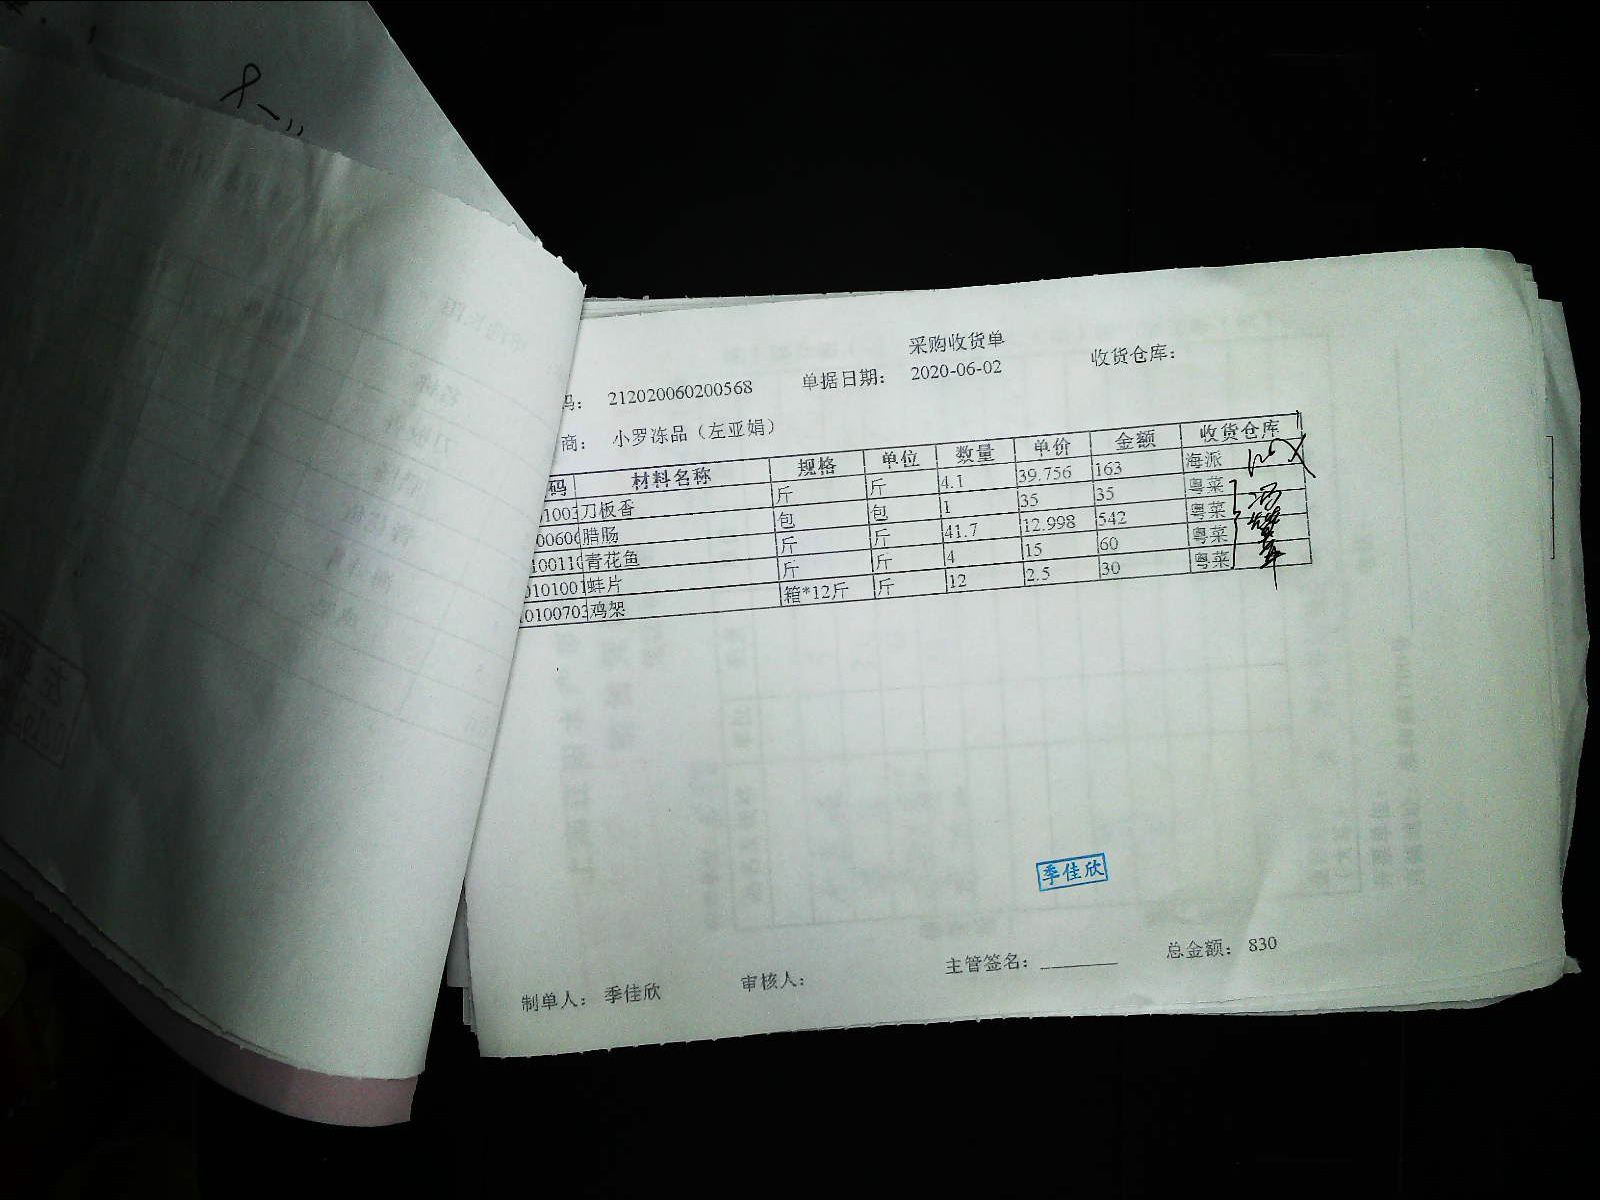 采购收货单
码： 212020060200568 单据日期： 2020-06-02 收货仓库：
商： 小罗冻品（左亚娟）
码 材料名称 规格 单位 数量 单价 金额 收货仓库
01003 刀板香 斤 斤 4.1 39.756 163 海派
00606 腊肠 包 包 1 35 35 粤菜
100110 青花鱼 斤 斤 41.7 12.998 542 粤菜
0101001 蚌片 斤 斤 4 15 60 粤菜
0100703 鸡架 箱*12斤 斤 12 2.5 30 粤菜
季佳欣
制单人： 季佳欣 审核人： 主管签名： 总金额： 830